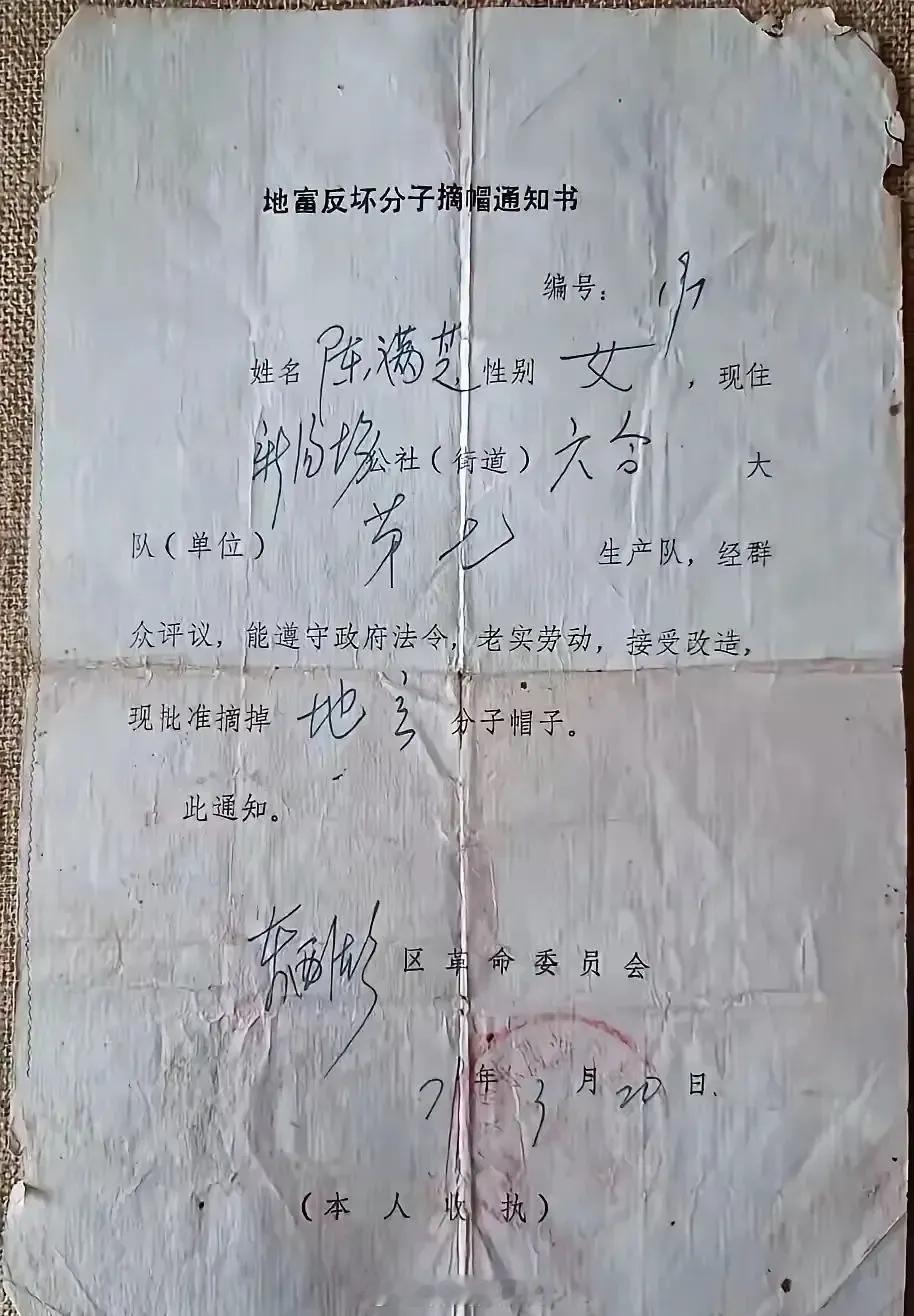 地富反坏分子摘帽通知书
编号：
姓名 陈满芝 性别 女，现住
新沟场公社（街道）六合 大
队（单位） 第七 生产队，经群
众评议，能遵守政府法令，老实劳动，接受改造，
现批准摘掉 地主 分子帽子。
此通知。
东西湖区革命委员会
年3月20日
（本人收执）